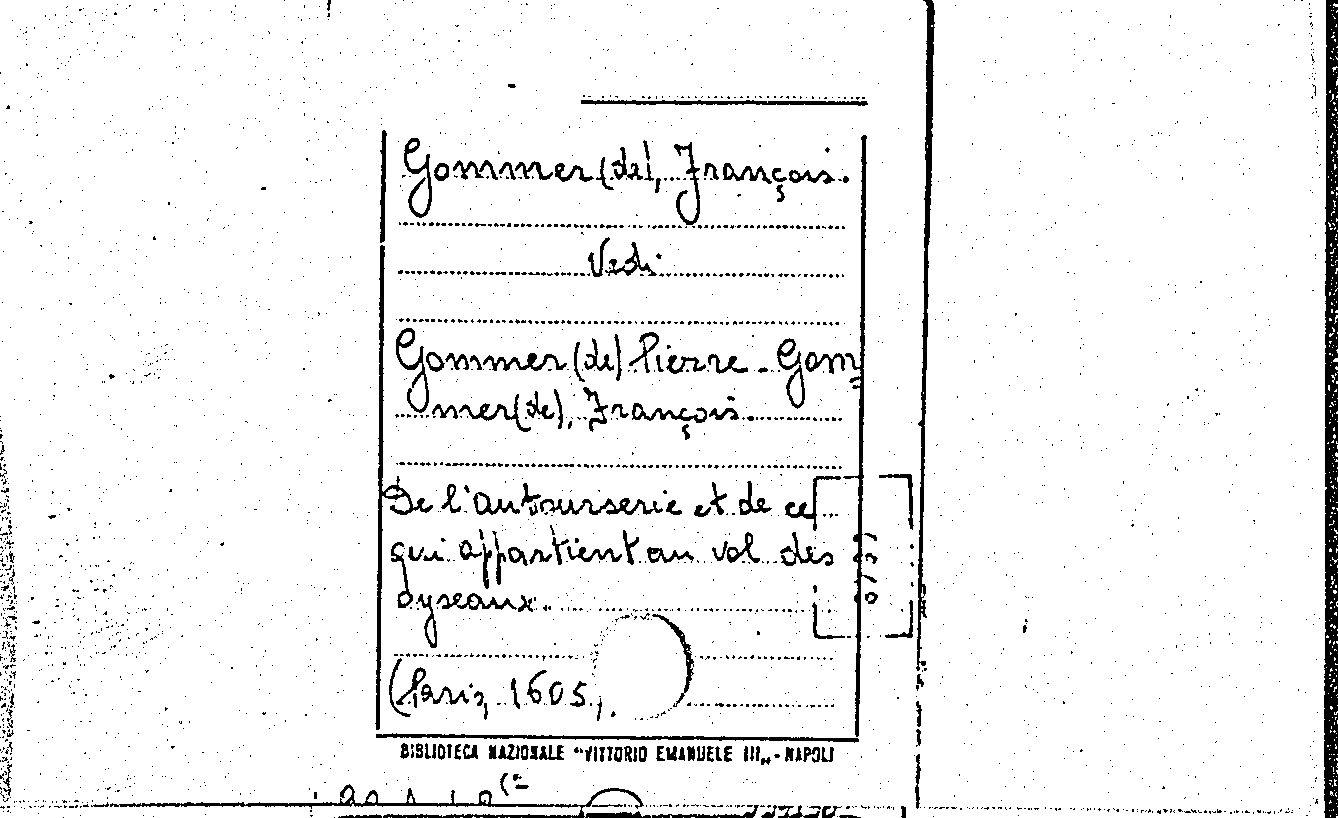 Gommer (de), François.
Vedi
Gommer (de) Pierre - Gom=
mer (de), François.
De l'autourserie et de ce
qui appartient au vol des
oyseaux.
(Paris, 1605).
BIBLIOTECA NAZIONALE "VITTORIO EMANUELE III„ - NAPOLI